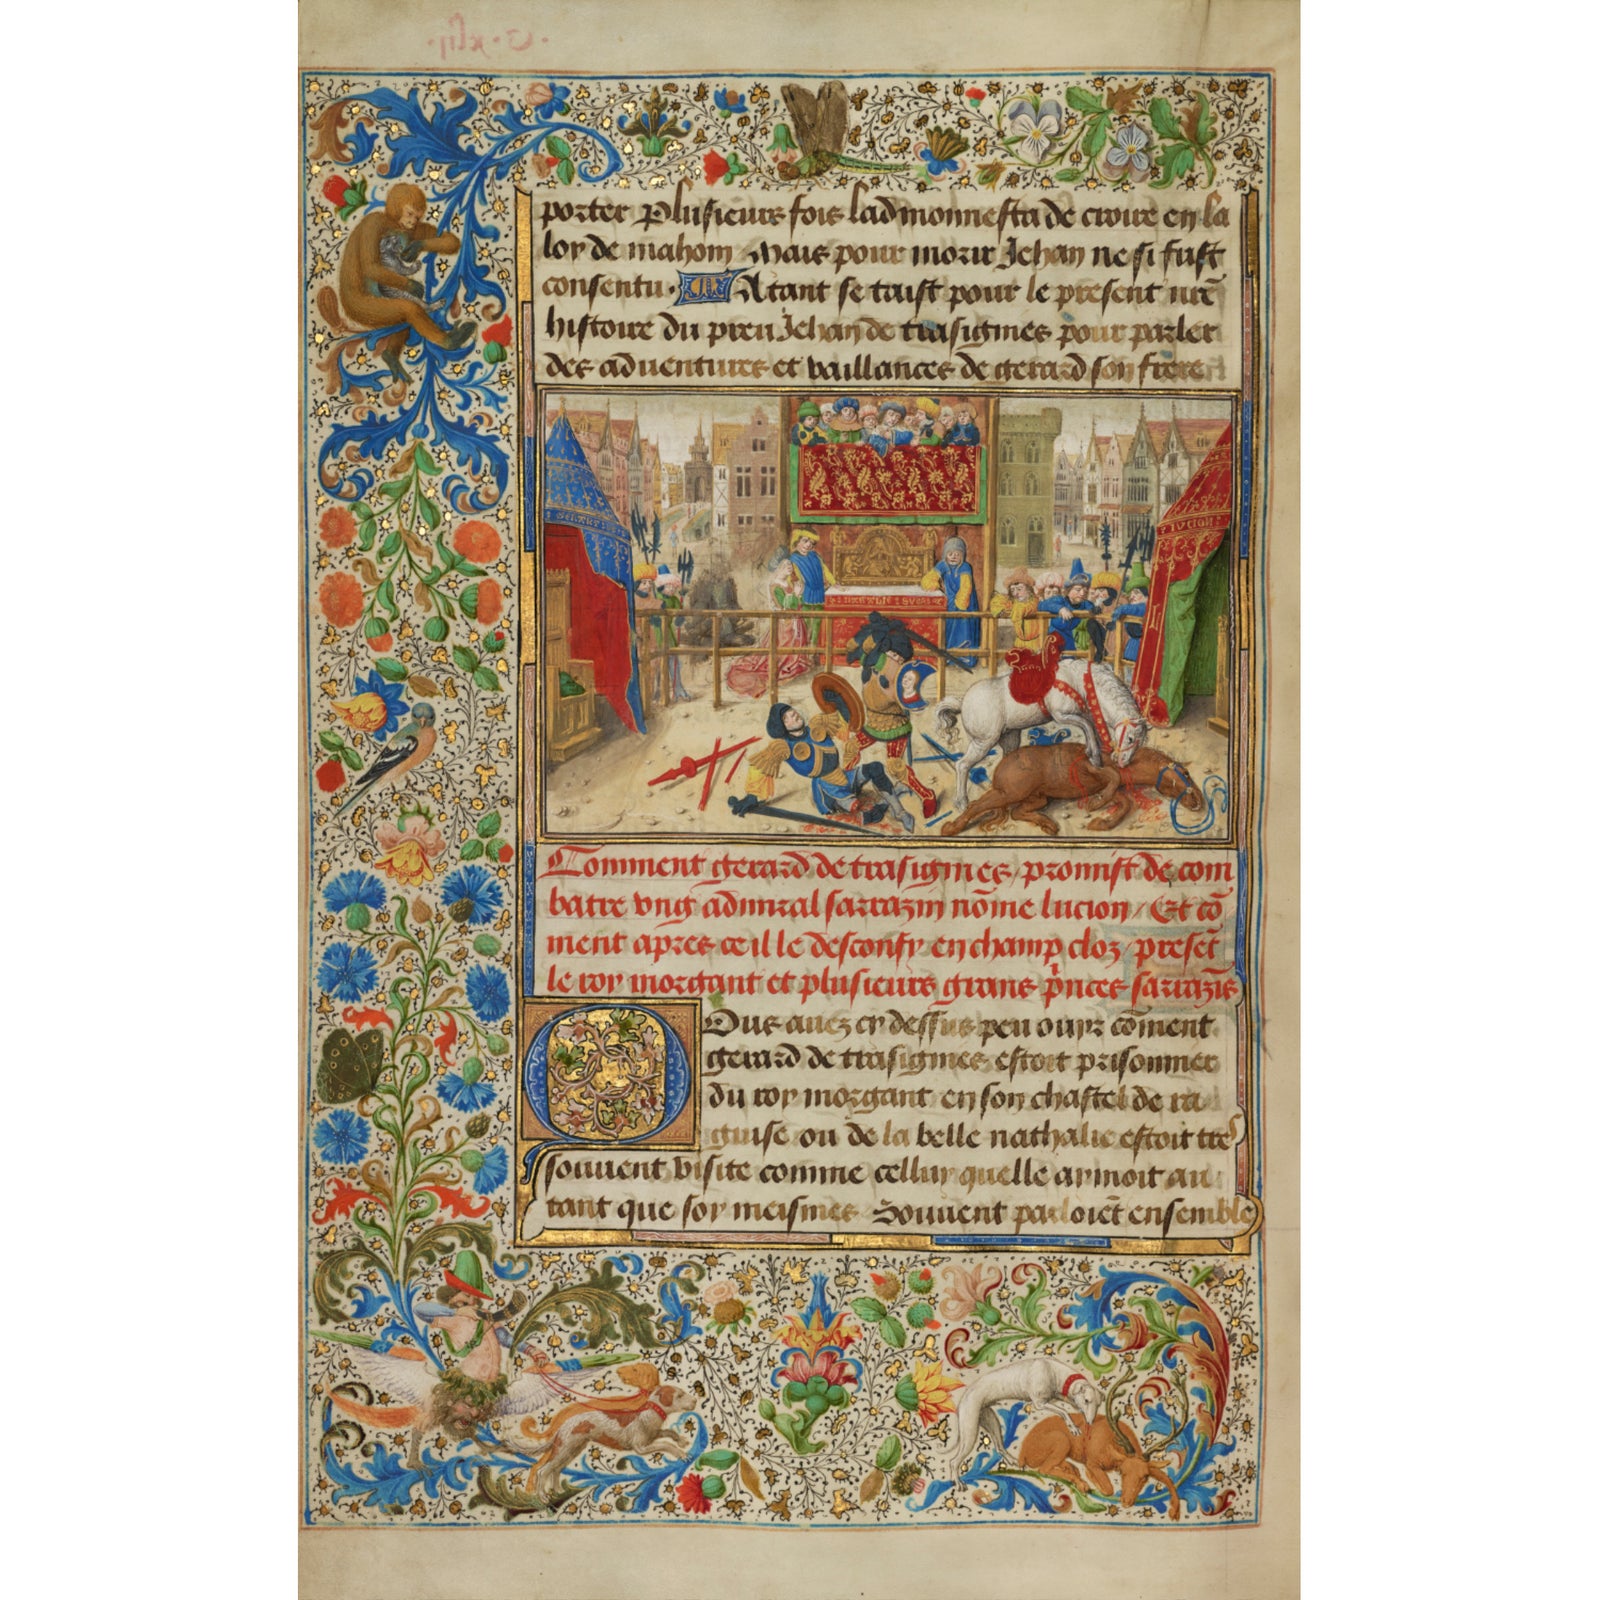 porter Plusieurs fois ladmonnesta de croire en la
loy de mahom Mais pour morir Jehan ne si fust
consentu. Atant se taist pour le present nre
histoire du preu Jehan de trasignies pour parler
des aduentures et vaillances de gerard son frere
LUCION
Comment gerard de trasignies, promist de com
batre vng admiral sarrazin nōme lucion, Et cō
ment apres ce il le desconfy en champ cloz, preset
le roy morgant et plusieurs grans p̄nces sarrazīs
Ous auez cy dessus peu ouyr cōment
gerard de trasignies estoit prisonnier
du roy morgant en son chastel de ra
guise ou de la belle nathalie estoit tres
souuent visite comme celluy quelle aymoit au
tant que soy meismes Souuent parloiēt ensemble